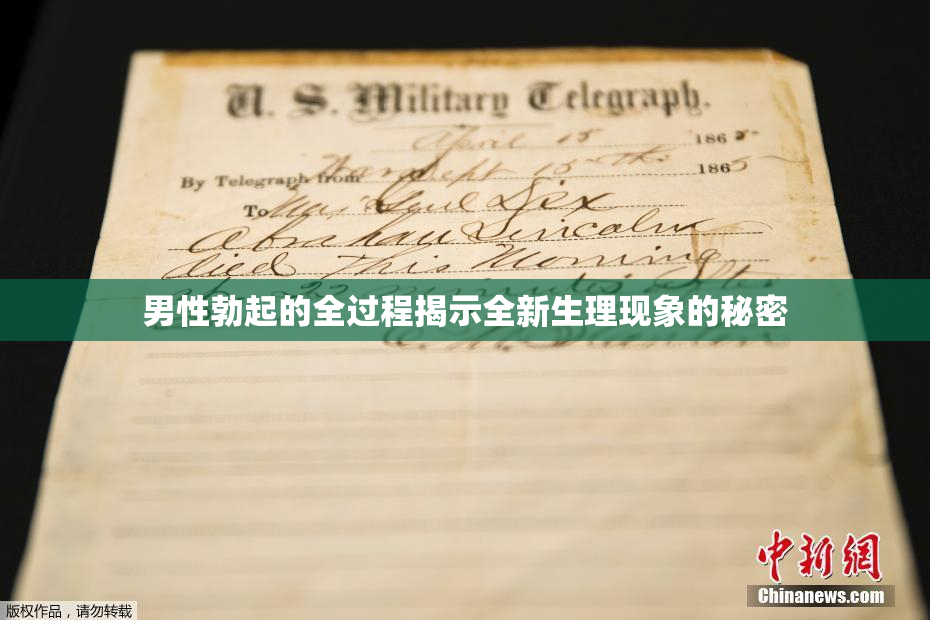 U. S. Military Telegraph.
April 15 1865
By Telegraph from War Dept 15th 1865
To Maj Genl Dix
Abraham Lincoln
died This Morning
22 minutes after
男性勃起的全过程揭示全新生理现象的秘密
E. M. Stanton
中新网
Chinanews.com
版权作品，请勿转载